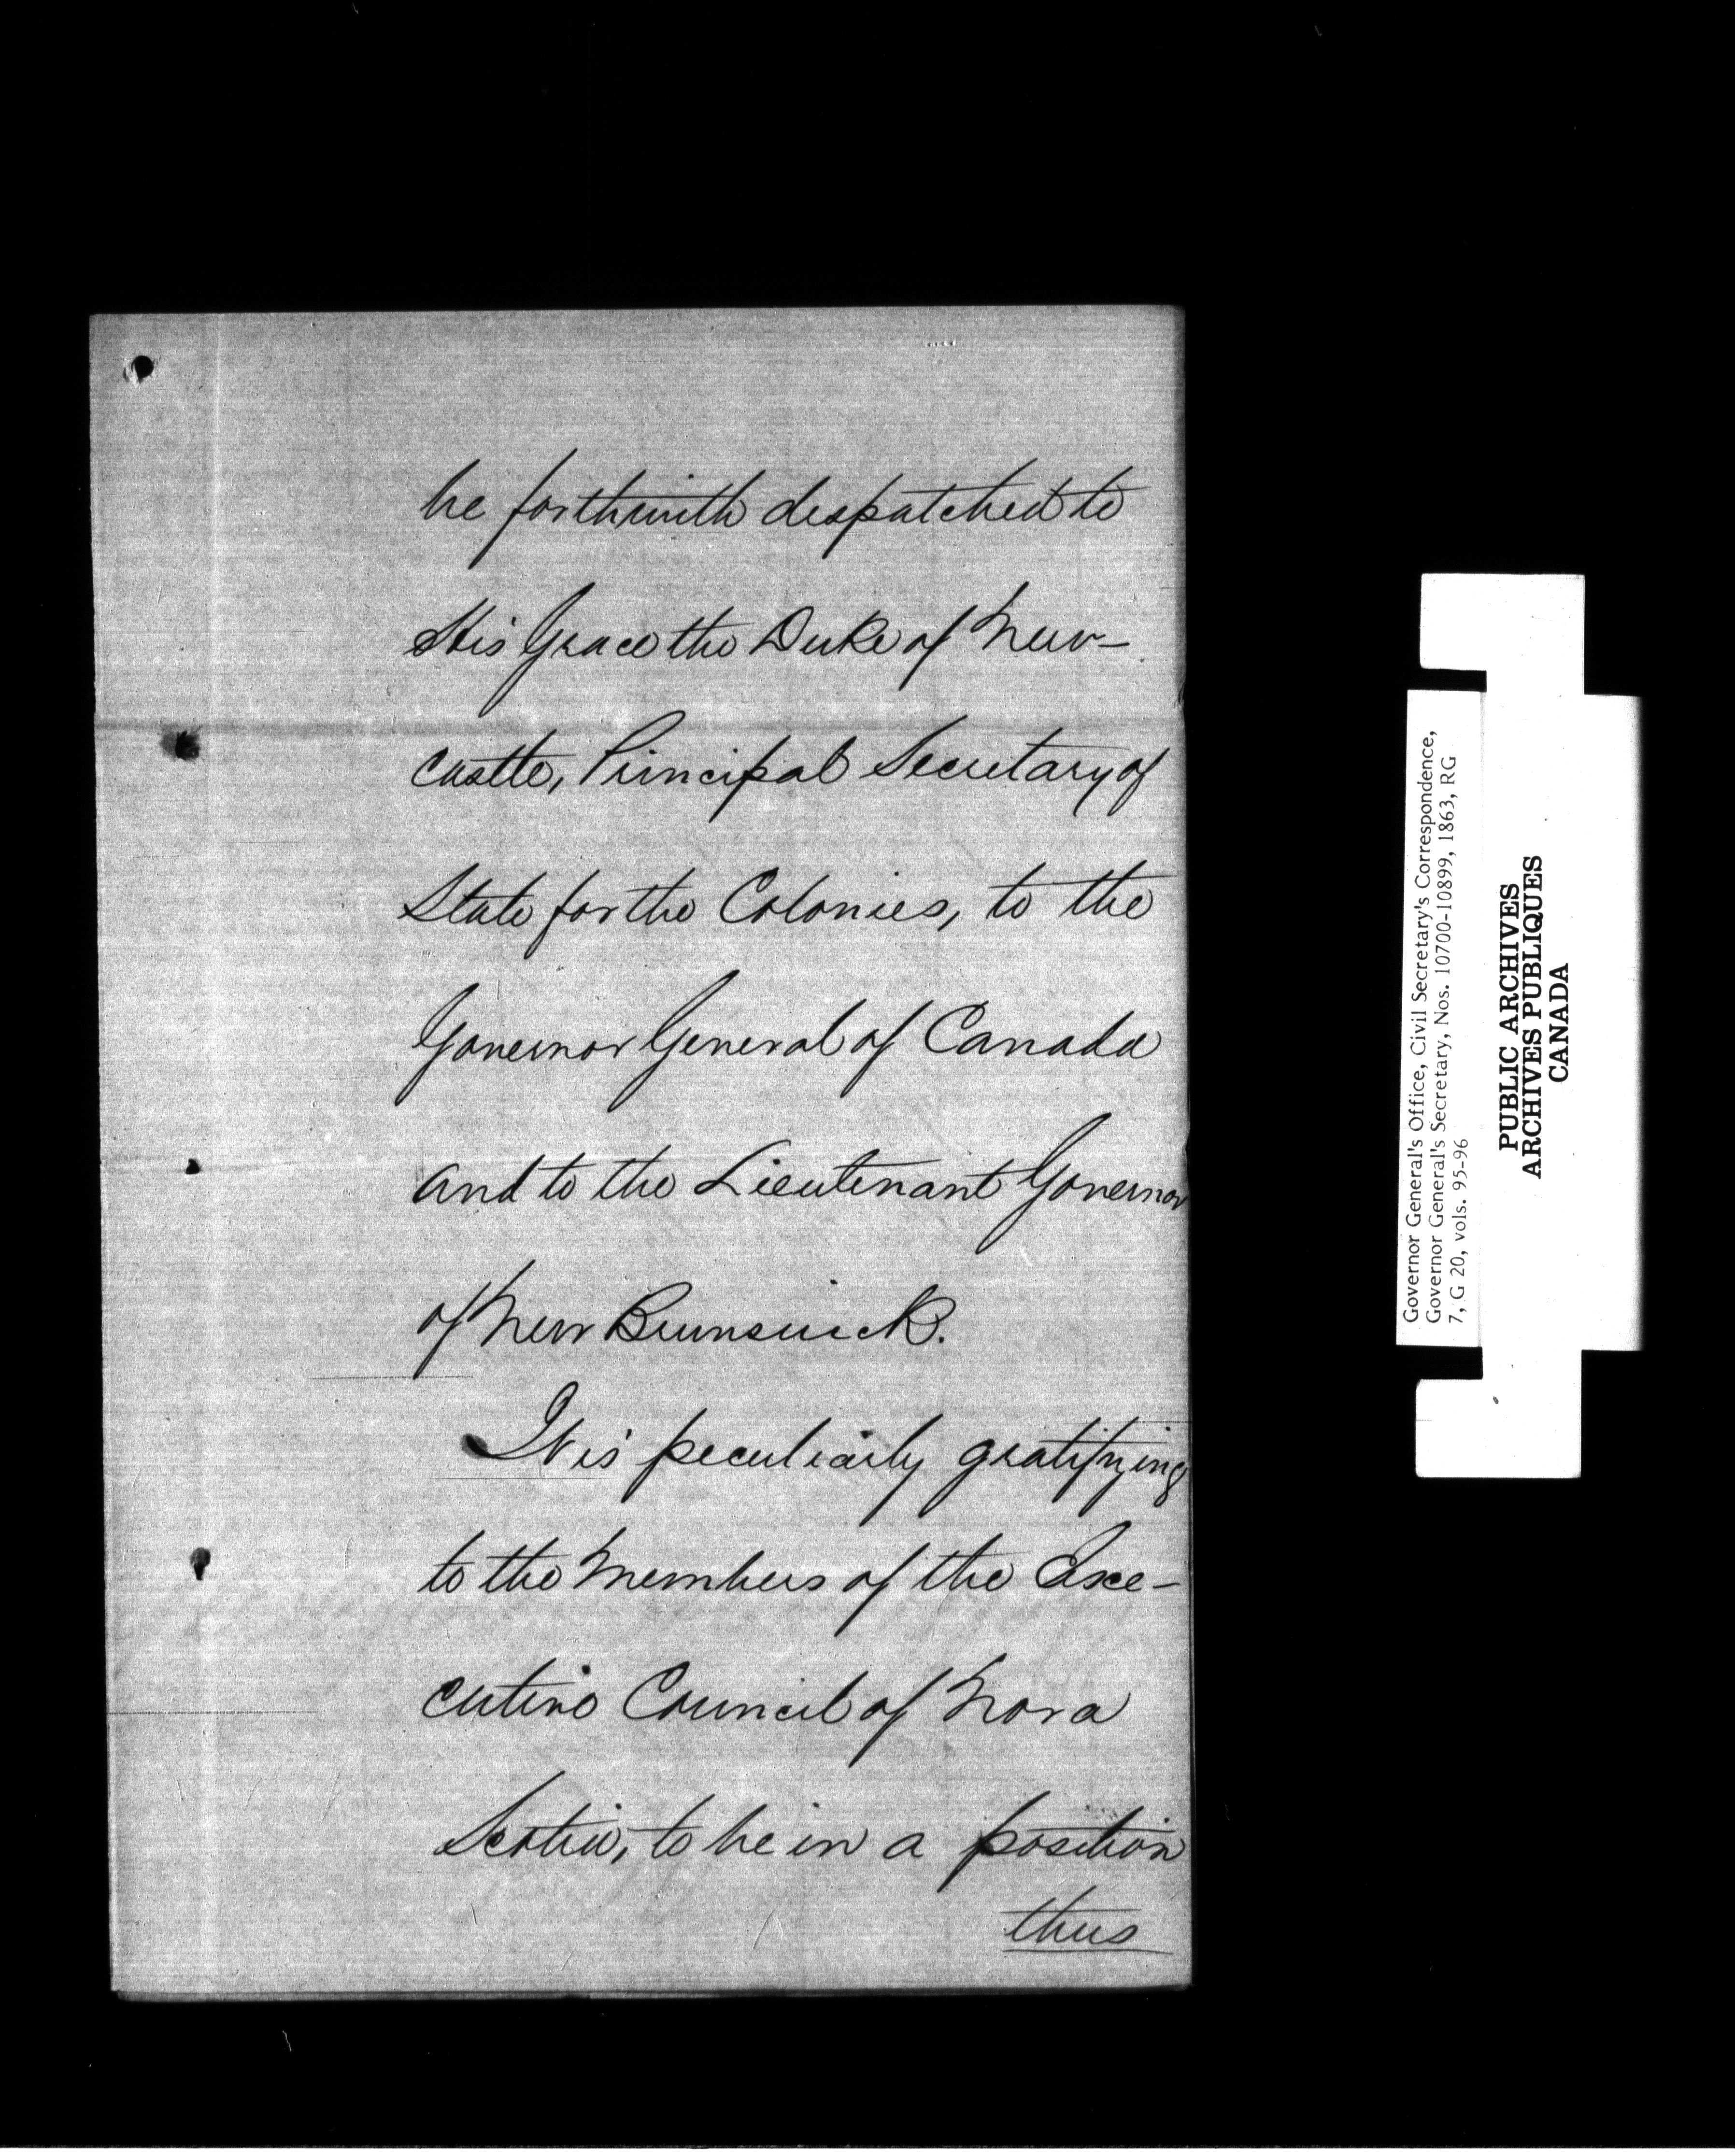 be forthwith despatched to
His Grace the Duke of New-
castle, Principal Secretary of
State for the Colonies, to the
Governor General of Canada
and to the Lieutenant Governor
of New Brunswick.
It is peculiarly gratifying
to the Members of the Exe-
cutive Council of Nova
Scotia, to be in a position
thus
Governor General's Office, Civil Secretary's Correspondence,
Governor General's Secretary, Nos. 10700-10899, 1863, RG
7, G 20, vols. 95-96
PUBLIC ARCHIVES
ARCHIVES PUBLIQUES
CANADA